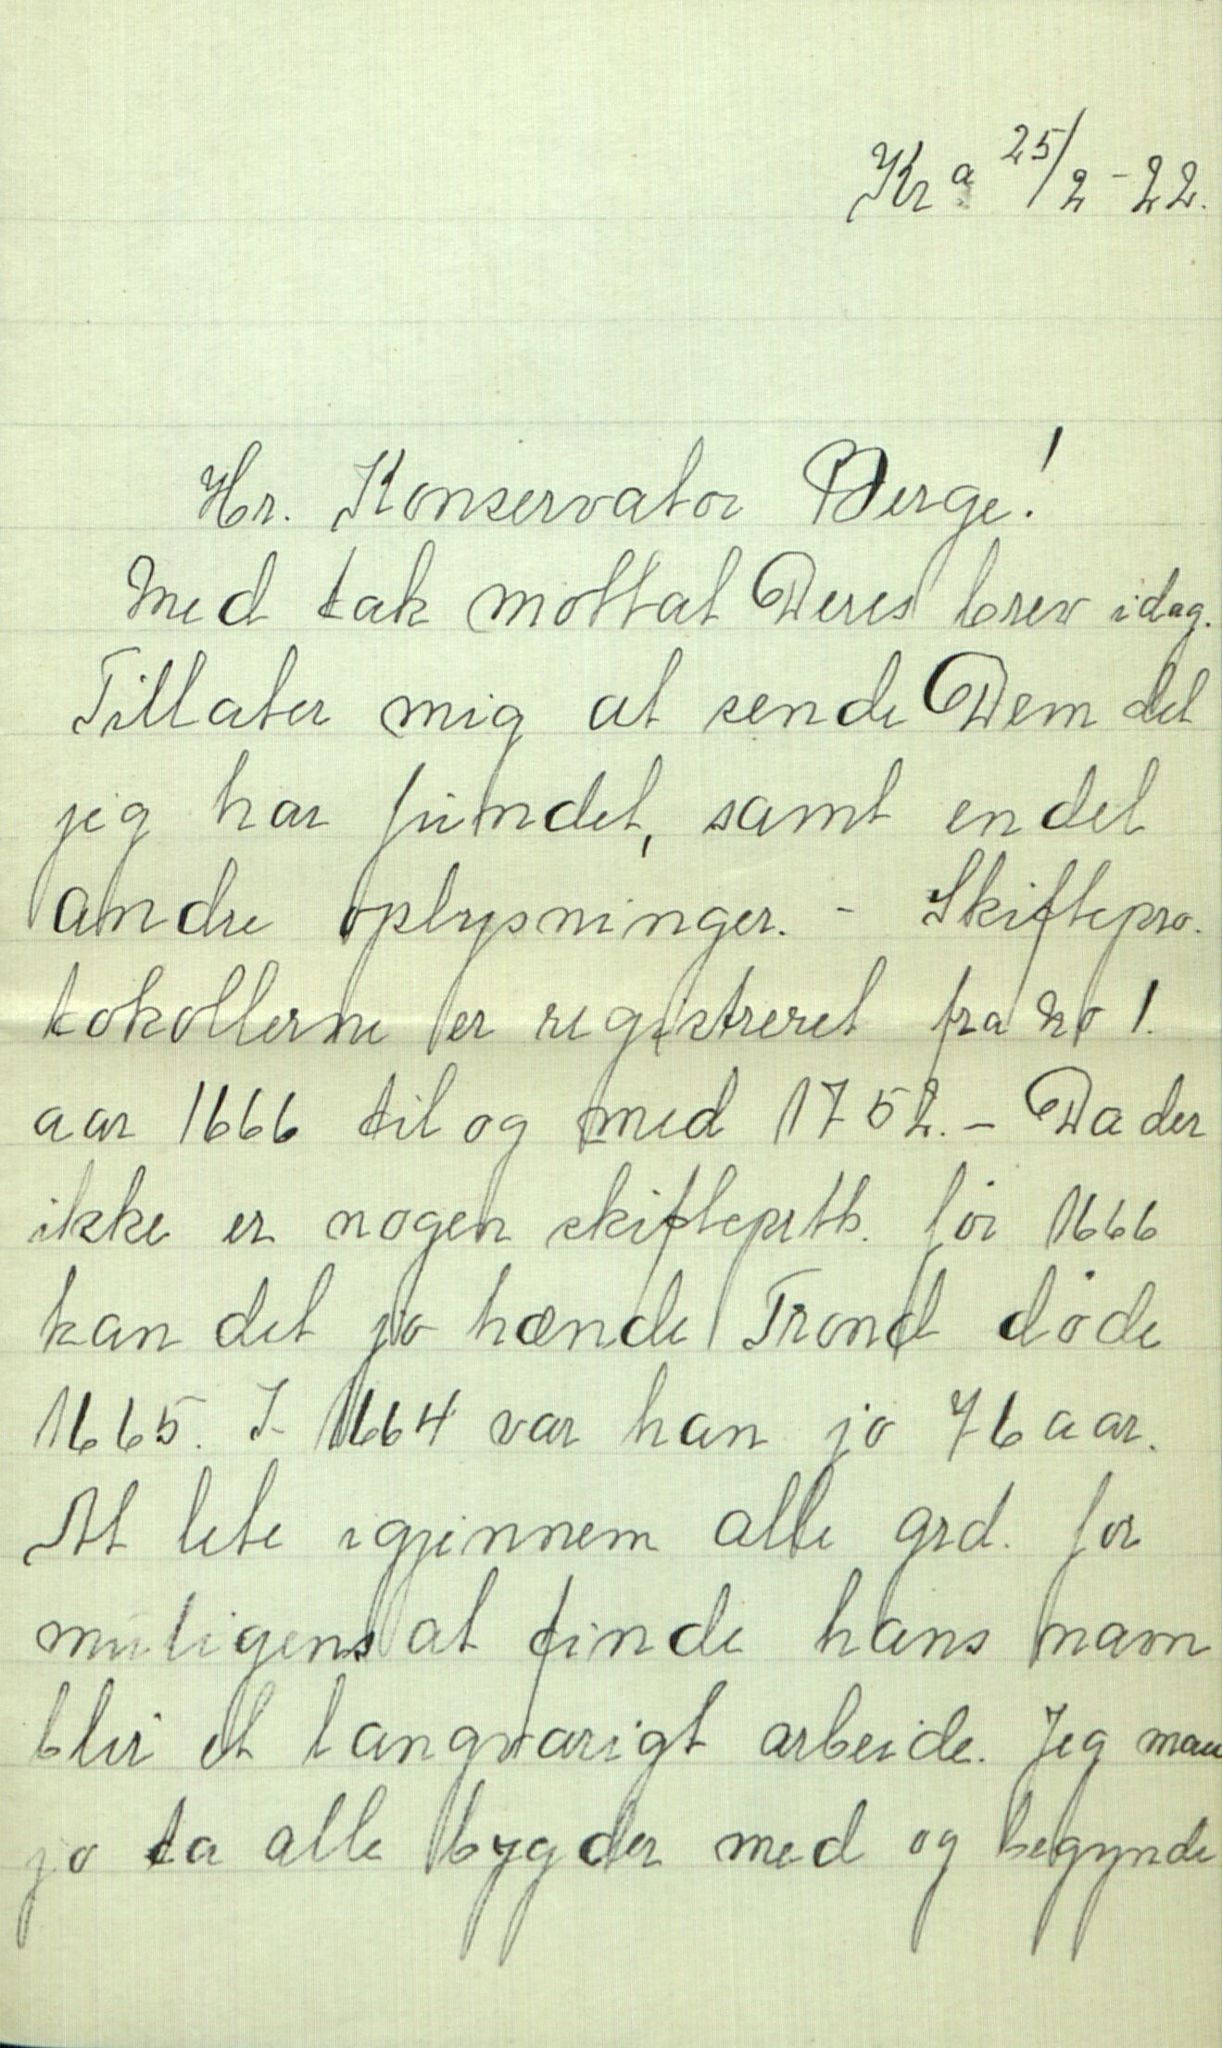 Kr a 25/2-22.
Hr. Konservator Berge!
Med tak mottat Deres brev idag.
Tillater mig at sende Dem det
jeg har fundet, samt endel
andre oplysninger. - Skiftepro-
tokollerne er registreret fra no 1.
aar 1666 til og med 1752. - Da der
ikke er nogen skifteprtk. før 1666
kan det jo hænde Trond døde
1665. I 1664 var han jo 76 aar.
At lete igjennem alle grd. for
muligens at finde hans navn
blir et langvarigt arbeide. Jeg maa
jo ta alle bygder med og begynde